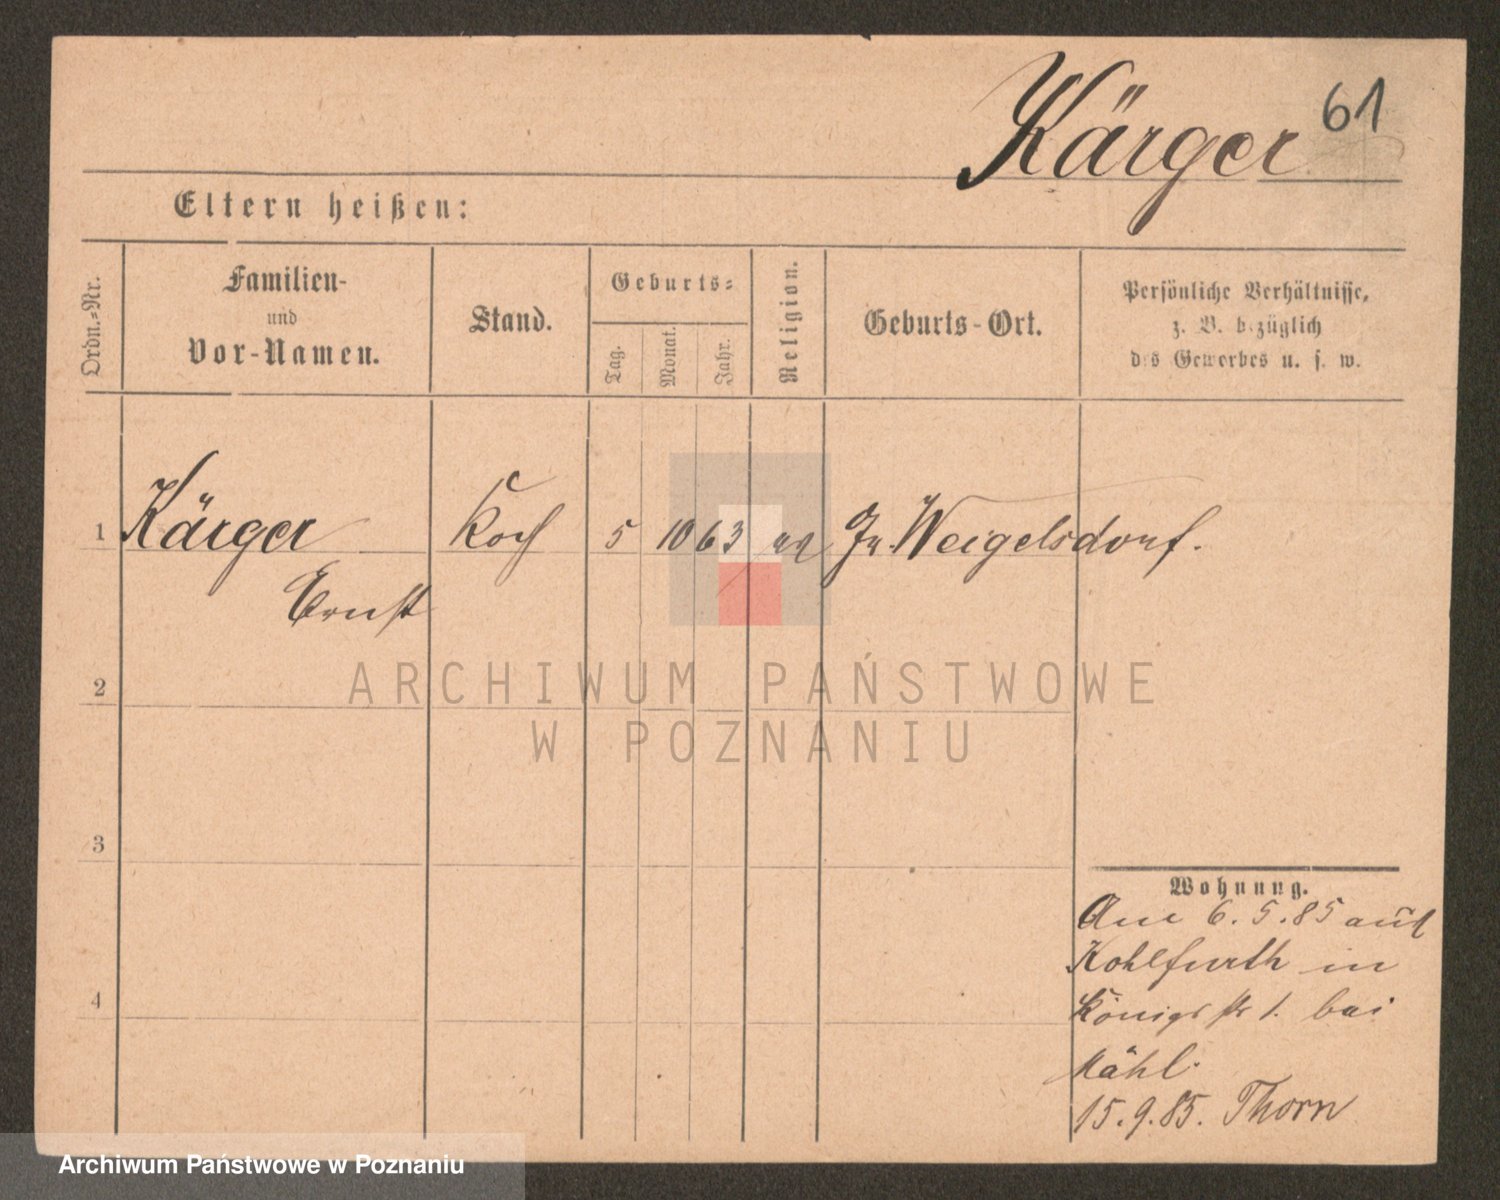 Kärger 61
Eltern heißen:
Ordn.-Nr.
Familien-
und
Vor-Namen.
Stand.
Geburts-
Tag.
Monat.
Jahr.
Religion.
Geburts-Ort.
Persönliche Verhältnisse,
z. B. bezüglich
des Gewerbes u. s. w.
1 Kärger Koch 5 10 63 Weigelsdorf.
Ernst
2
3
4
Wohnung.
6.5.85 aus
Kohlfurth in
Königsstr 1. bei
Mähl.
15.9.85. Thorn
ARCHIWUM PAŃSTWOWE
W POZNANIU
Archiwum Państwowe w Poznaniu